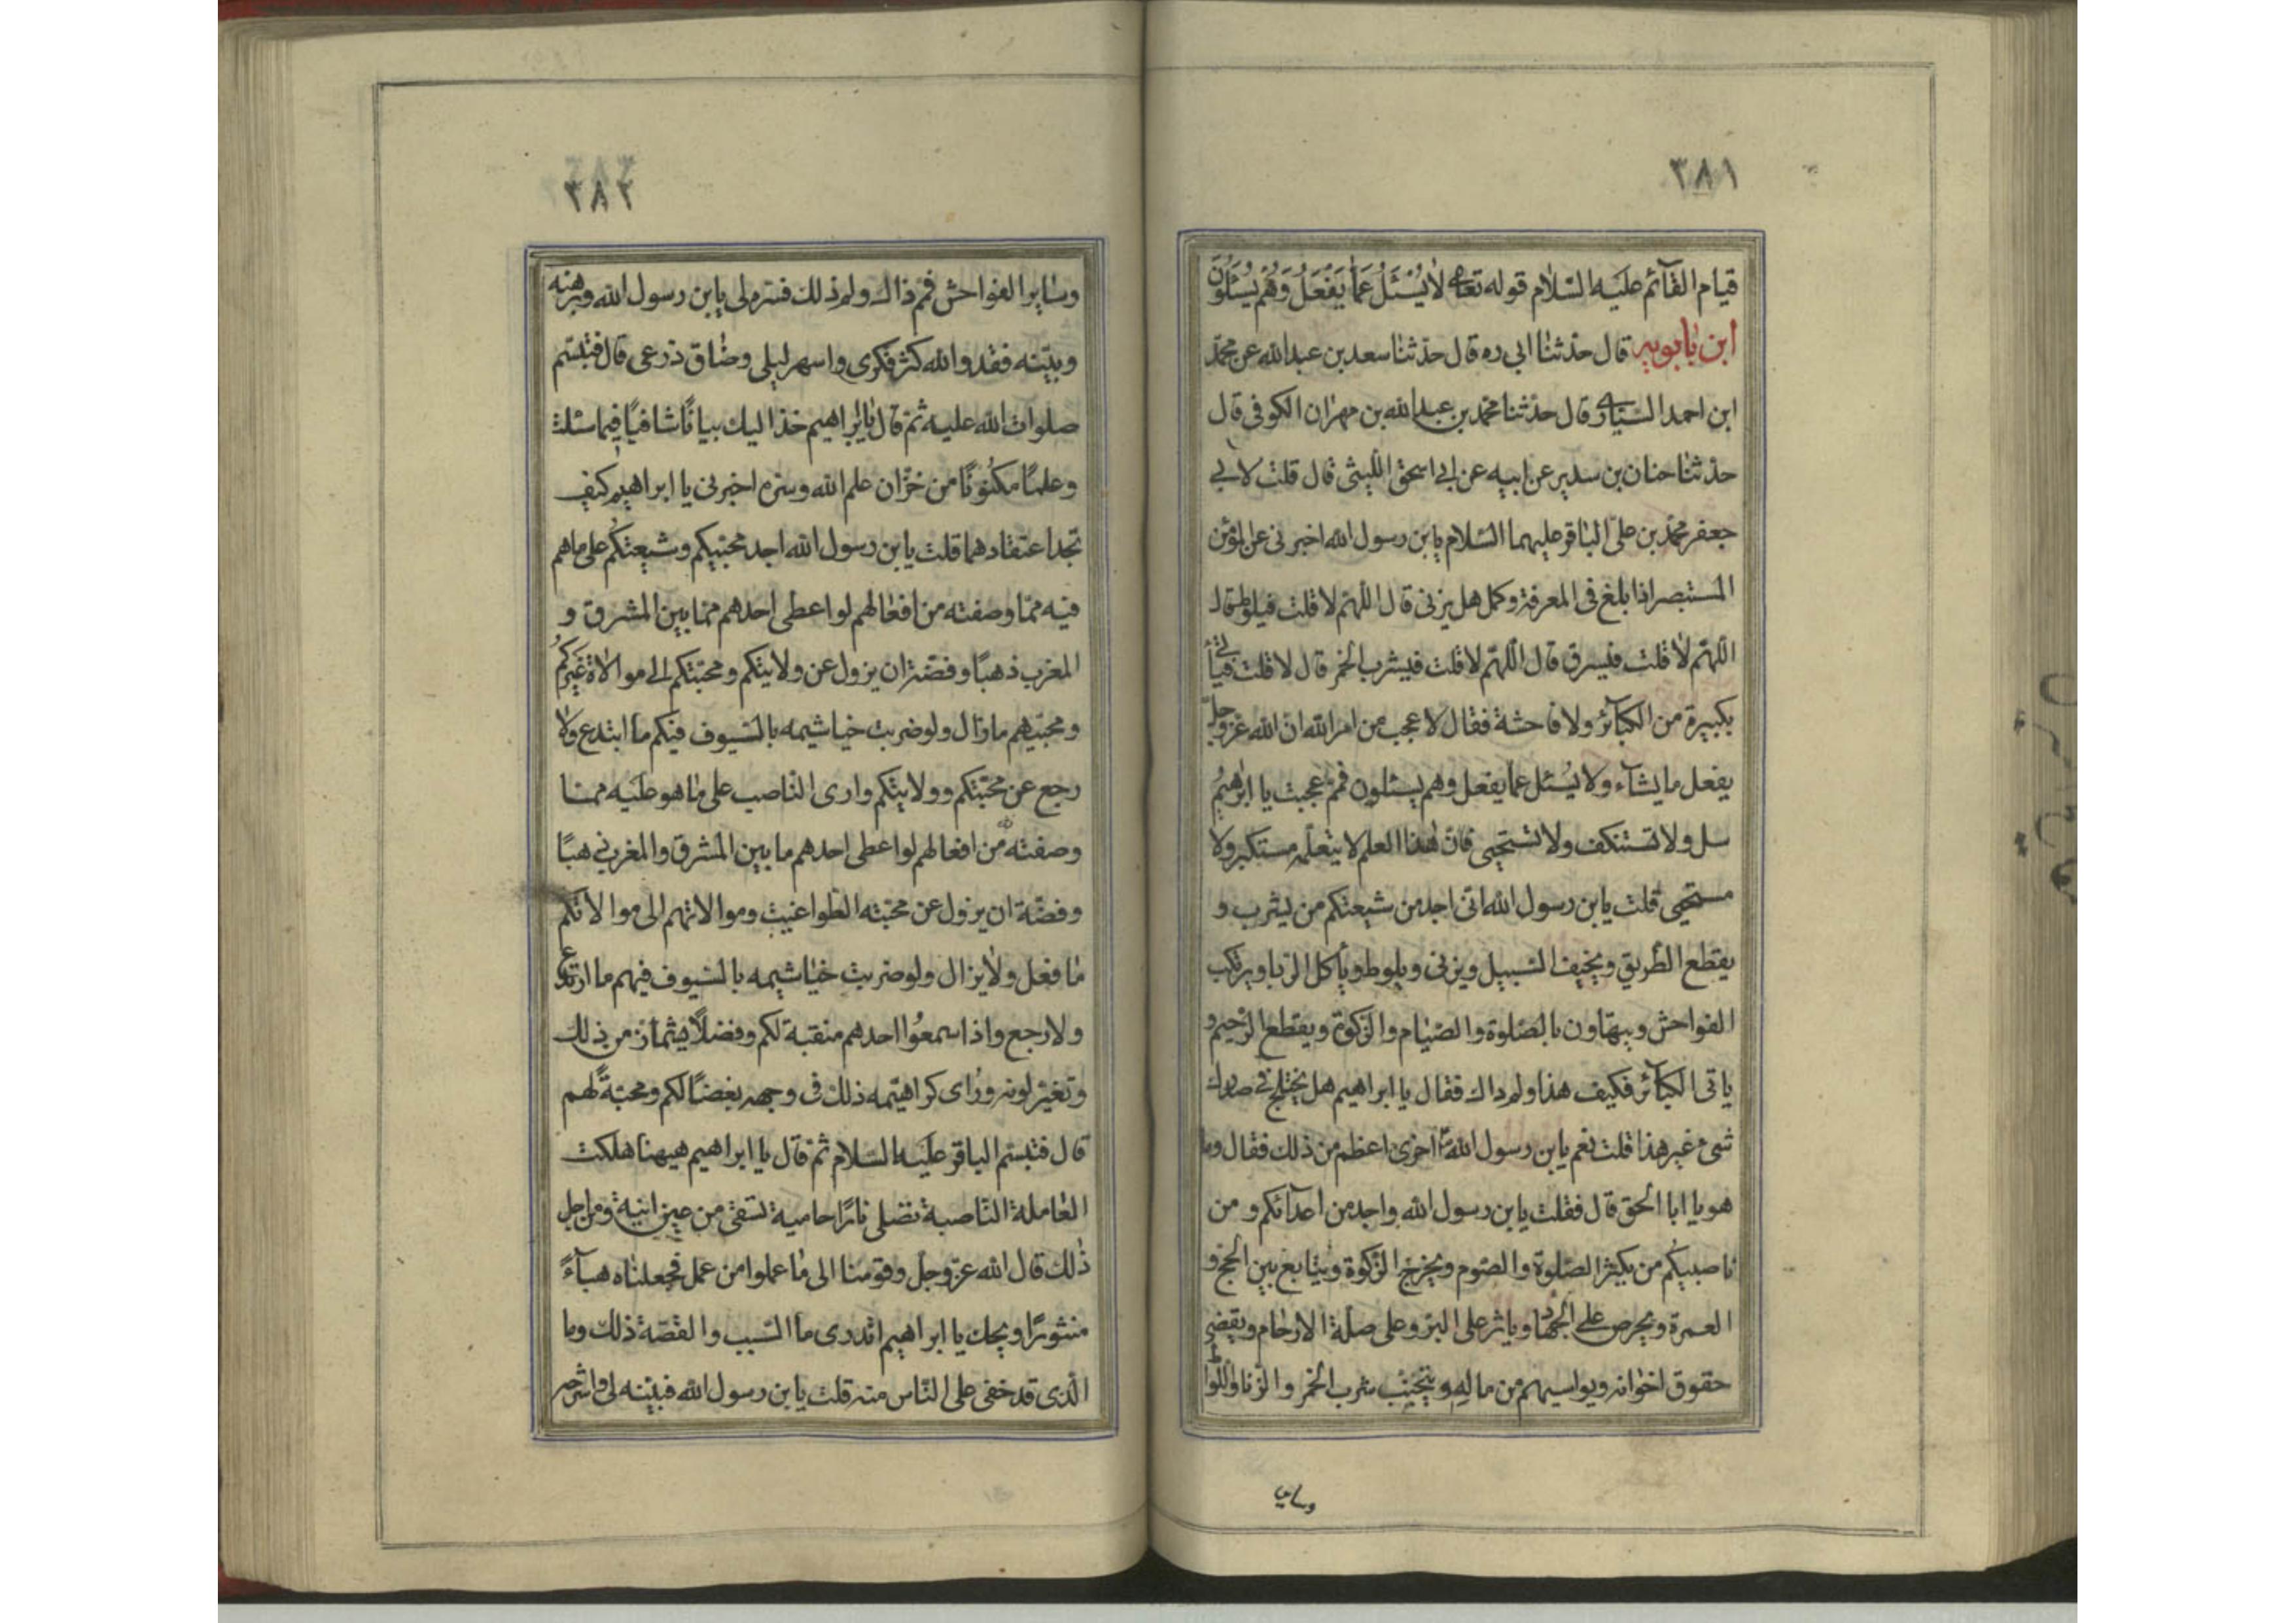 ٣٨١
قيام القآئم عليه السّلام قوله تعالى لا يُسْئَلُ عَمّا يَفْعَلُ وَهُمْ يُسْئَلُونَ
ابن بابويه قال حدّثنا ابى ره قال حدّثنا سعد بن عبد الله عن محمّد
ابن احمد السّيّارى قال حدّثنا محمّد بن عبد الله بن مهران الكوفى قال
حدثنا حنان بن سدير عن ابيه عن ابى اسحق اللّيثى قال قلت لابى
جعفر محمّد بن علىّ الباقر عليهما السّلام يا بن رسول الله اخبرنى عن المؤمن
المستبصر اذا بلغ فى المعرفة وكمل هل يزنى قال اللّهمّ لا قلت فيلوط قال
اللّهمّ لا قلت فيسرق قال اللّهمّ لا قلت فيشرب الخمر قال لا قلت فيأتى
بكبيرة من الكبآئر ولا فاحشة فقال لا عجب من امر الله انّ الله عزّ وجلّ
يفعل ما يشآء ولا يُسئل عمّا يفعل وهم يسئلون فممّ عجبت يا ابرهيم
سل ولا تستنكف ولا تستحيى فانّ هذا العلم لا يتعلّمه مستكبر ولا
مستحيى قلت يا بن رسول الله انّى اجد من شيعتكم من يشرب و
يقطع الطّريق ويخيف السّبيل ويزنى ويلوط ويأكل الرّبا ويرتكب
الفواحش ويتهاون بالصّلوة والصّيام والزّكوة ويقطع الرّحيم و
ياتى الكبآئر فكيف هذا ولم داك فقال يا ابراهيم هل يختلج فى صدرك
شىء غير هذا قلت نعم يا بن رسول الله اخرى اعظم من ذلك فقال وما
هو يا ابا اسحق قال فقلت يا بن رسول الله واجد من اعدآئكم و من
ناصبيكم من يكثر الصّلوة والصّوم ويخرج الزّكوة ويتابع بين الحجّ و
العمرة ويحرص على الجهاد وياثر على البرّ وعلى صلة الارحام ويقضى
حقوق اخوانه ويواسيهم من ماله ويتجنّب شرب الخمر والزّنا واللّواط
وساير
٣٨٢
وساير الفواحش فممّ ذاك ولم ذلك فسّره لى يا بن رسول الله وبرهنه
وبيّنه فقد والله كثر فكرى واسهر ليلى وضاق ذرعى قال فتبسّم
صلوات الله عليه ثمّ قال يا ابراهيم خذ اليك بيانًا شافيًا فيما سئلت
وعلمًا مكنونًا من خزّان علم الله وسرّه اخبرنى يا ابراهيم كيف
تجد اعتقادهما قلت يا بن رسول الله اجد محبّيكم وشيعتكم على ما هم
فيه ممّا وصفته من افعالهم لو اعطى احدهم ممّا بين المشرق و
المغرب ذهبًا وفضّة ان يزول عن ولايتكم ومحبّتكم الى موالاة غَيركُم
ومحبّتهم ما زال ولو ضربت خياشيمه بالسّيوف فيكم ما ابتدع ولا
رجع عن محبّتكم وولايتكم وارى النّاصب على ما هو عليه ممّا
وصفته من افعالهم لو اعطى احدهم ما بين المشرق والمغرب ذهبًا
وفضّة ان يزول عن محبّته الطّواغيت وموالاتهم الى موالاتكم
ما فعل ولا يزال ولو ضربت خياشيمه بالسّيوف فيهم ما ارتدع
ولا رجع واذا سمعوا احدهم منقبة لكم وفضلاً يشمأزّ من ذلك
وتغيّر لونه ورُاى كراهيّته ذلك فى وجهه بغضًا لكم ومحبّةً لهم
قال فتبسّم الباقر عليه السّلام ثمّ قال يا ابراهيم هيهنا هلكت
العاملة النّاصبة تصلى نارًا حامية تسقى من عين انية ومن اجل
ذلك قال الله عزّ وجلّ وقدمنا الى ما عملوا من عمل فجعلناه هبآءً
منثورًا ويحك يا ابراهيم اتدرى ما السّبب والقصّة ذلك وما
الّذى قد خفى على النّاس منه قلت يا بن رسول الله فبيّنه لى واشرحه